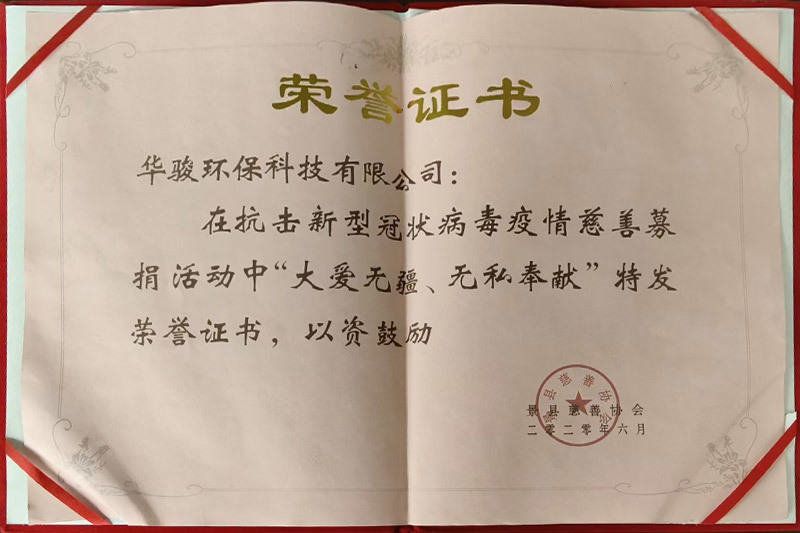 荣誉证书
华骏环保科技有限公司：
在抗击新型冠状病毒疫情慈善募
捐活动中“大爱无疆、无私奉献”特发
荣誉证书，以资鼓励
景县慈善协会
景县慈善协会
二零二零年六月